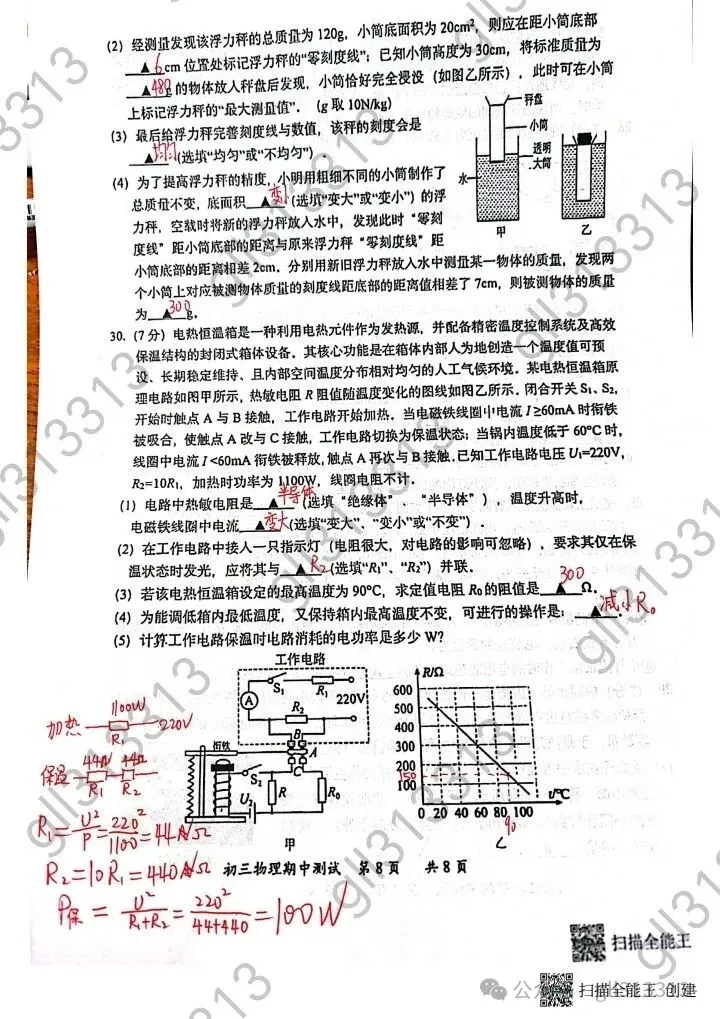 (2) 经测量发现该浮力秤的总质量为120g，小筒底面积为20cm²，则应在距小筒底部
▲6 cm位置处标记浮力秤的“零刻度线”；已知小筒高度为30cm，将标准质量为
▲480g的物体放入秤盘后发现，小筒恰好完全浸没（如图乙所示），此时可在小筒
上标记浮力秤的“最大测量值”.（g取10N/kg）
(3) 最后给浮力秤完善刻度线与数值，该秤的刻度会是
▲均匀(选填“均匀”或“不均匀”)
(4) 为了提高浮力秤的精度，小明用粗细不同的小筒制作了
总质量不变，底面积▲变小(选填“变大”或“变小”)的浮
力秤，空载时将新的浮力秤放入水中，发现此时“零刻
度线”距小筒底部的距离与原来浮力秤“零刻度线”距
小筒底部的距离相差2cm．分别用新旧浮力秤放入水中测量某一物体的质量，发现两
个小筒上对应被测物体质量的刻度线距底部的距离值相差了7cm，则被测物体的质量
为▲300g。
秤盘
小筒
透明
大筒
水
甲
乙
30. (7分) 电热恒温箱是一种利用电热元件作为发热源，并配备精密温度控制系统及高效
保温结构的封闭式箱体设备．其核心功能是在箱体内部人为地创造一个温度值可预
设、长期稳定维持、且内部空间温度分布相对均匀的人工气候环境．某电热恒温箱原
理电路如图甲所示，热敏电阻R阻值随温度变化的图线如图乙所示．闭合开关S₁、S₂，
开始时触点A与B接触，工作电路开始加热．当电磁铁线圈中电流I≥60mA时衔铁
被吸合，使触点A改与C接触，工作电路切换为保温状态；当锅内温度低于60℃时，
线圈中电流I<60mA衔铁被释放，触点A再次与B接触．已知工作电路电压U₁=220V，
R₂=10R₁，加热时功率为1100W，线圈电阻不计．
(1) 电路中热敏电阻是▲半导体(选填“绝缘体”、“半导体”)，温度升高时，
电磁铁线圈中电流▲变大(选填“变大”、“变小”或“不变”)．
(2) 在工作电路中接入一只指示灯（电阻很大，对电路的影响可忽略），要求其仅在保
温状态时发光，应将其与▲R₂(选填“R₁”、“R₂”) 并联．
(3) 若该电热恒温箱设定的最高温度为90℃，求定值电阻R₀的阻值是▲300Ω．
(4) 为能调低箱内最低温度，又保持箱内最高温度不变，可进行的操作是：▲减小R₀
(5) 计算工作电路保温时电路消耗的电功率是多少W?
工作电路
A
S₁
R₁
220V
R₂
B
衔铁
A
C
S₂
U₂
R
R₀
甲
R/Ω
600
500
400
300
200
150
100
0 20 40 60 80 100 t/℃
90
乙
加热
1100W
R₁
220V
保温
44Ω 44Ω
R₁ R₂
R₁=U²/P=220²/1100=44Ω
R₂=10R₁=440Ω
P保=U²/(R₁+R₂)=220²/(44+440)=100W
初三物理期中测试 第8页 共8页
扫描全能王
扫描全能王 创建
公众号
gll313313